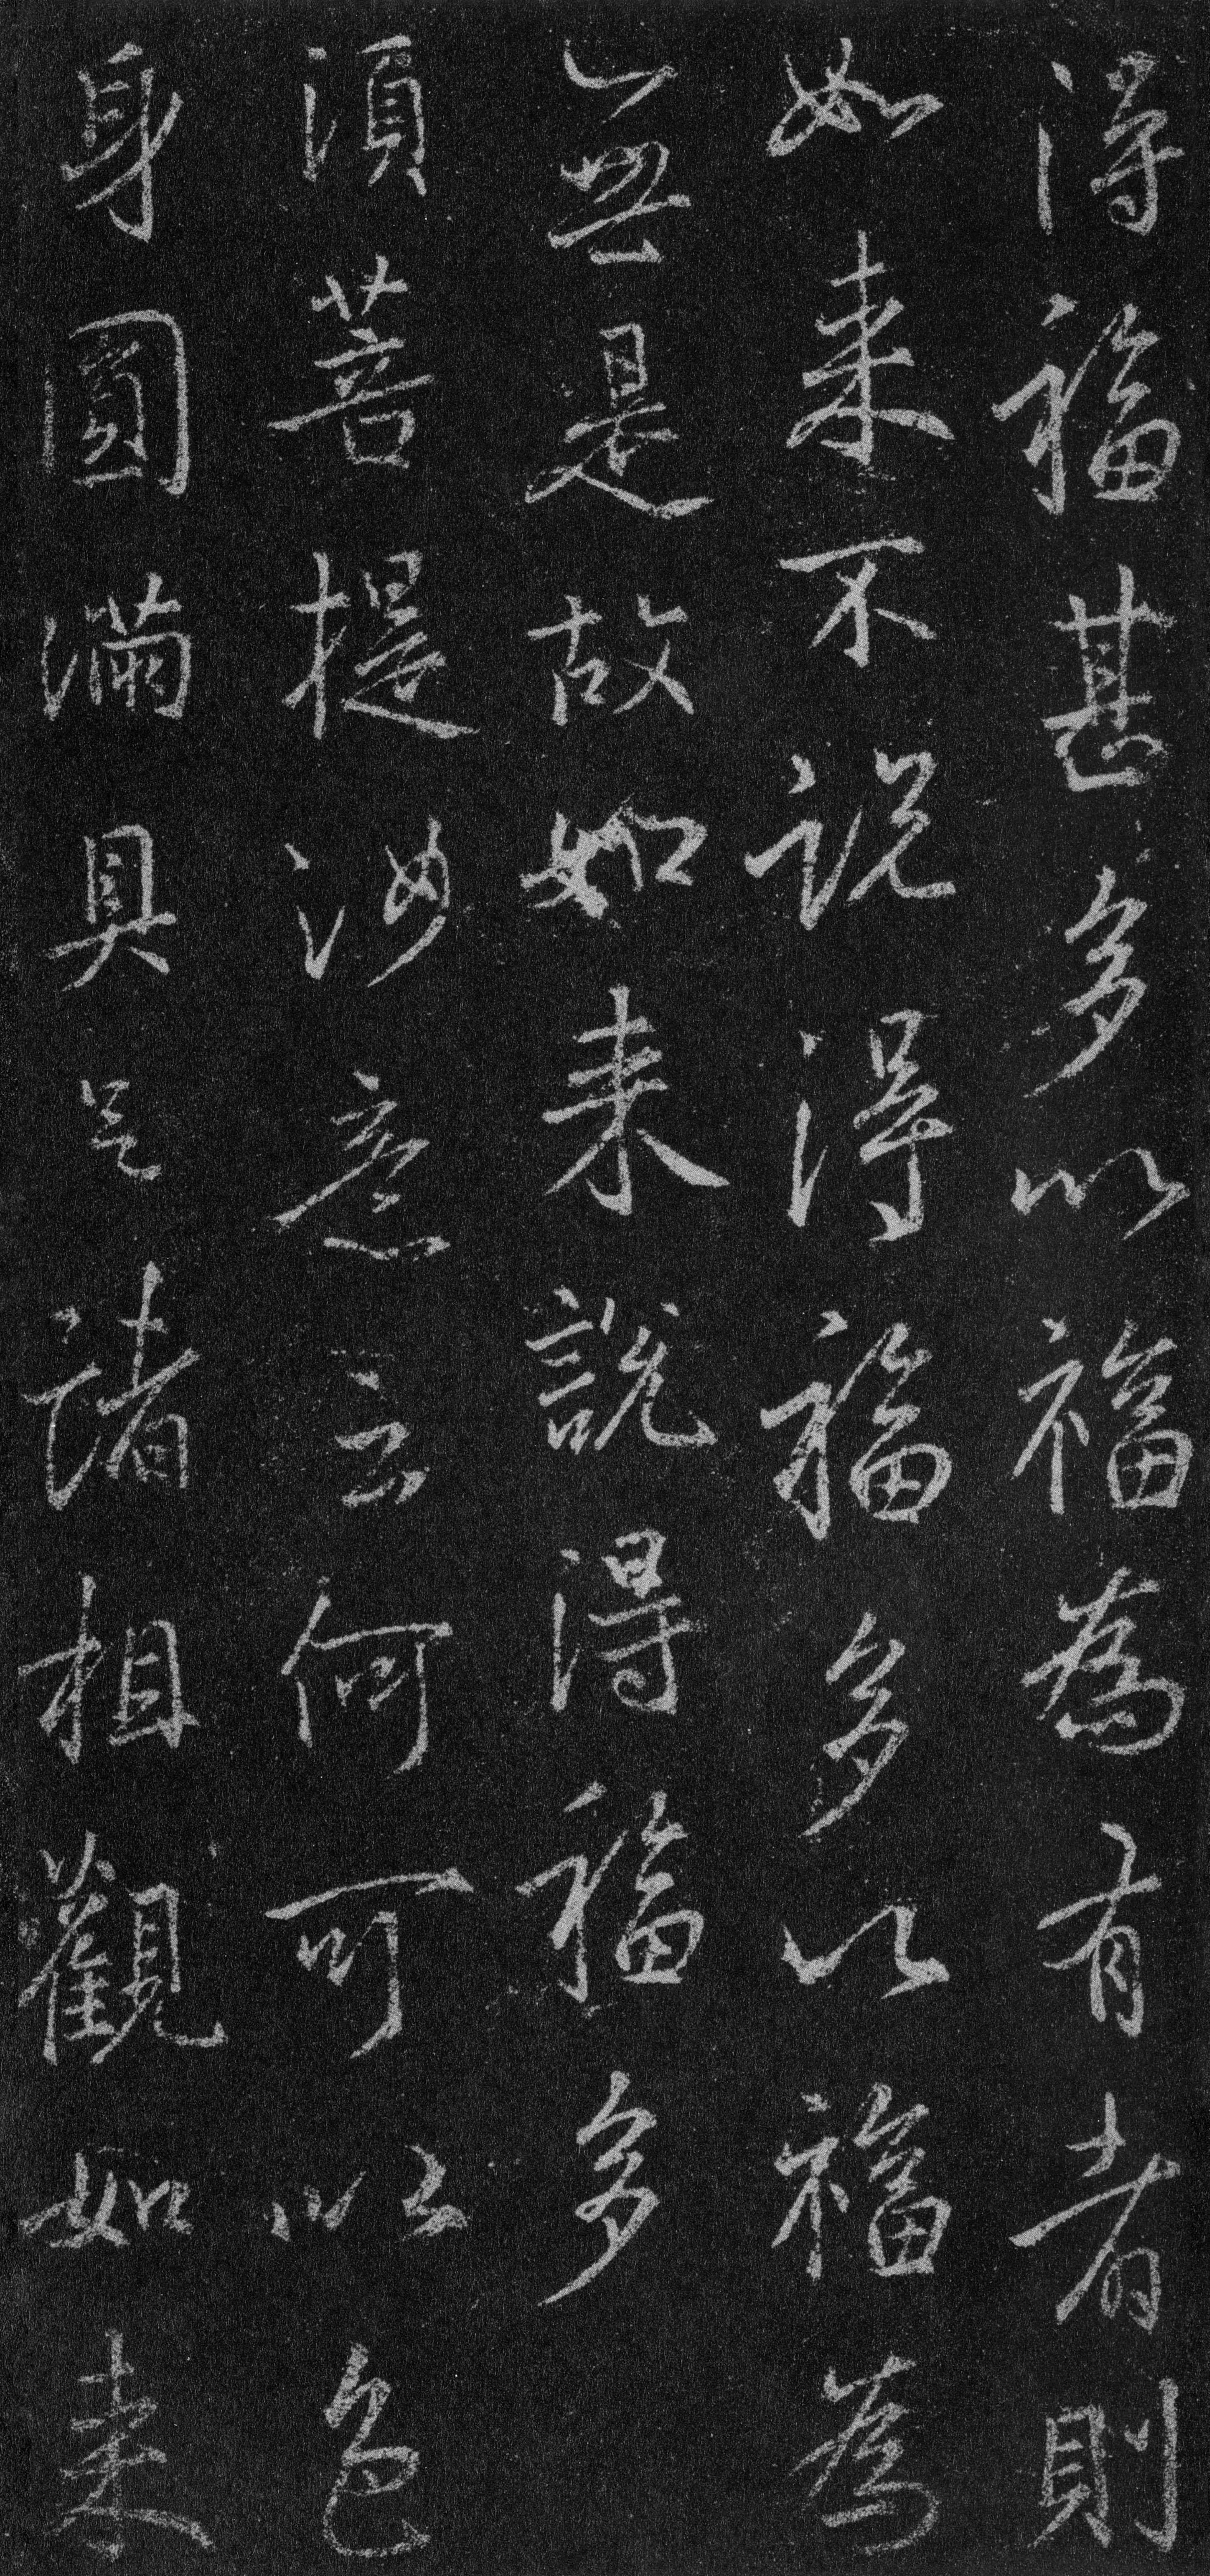 得福甚多以福為有者則
如来不説得福多以福為
以無是故如来説得福多
須菩提汝意云何可以色
身圓滿具足諸相觀如来